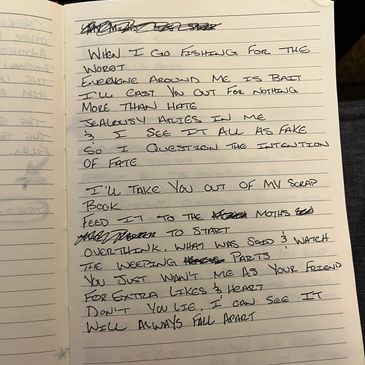 When I go fishing for the
worst
Everyone around me is bait
I'll cast you out for nothing
more than hate
Jealousy aries in me
& I see it all as fake
So I question the intention
of fate
I'll take you out of my scrap
book
Feed it to the moths
to start
Overthink, what was said & watch
the weeping parts
You just want me as your friend
for extra likes & heart
Don't you lie, I can see it
will always fall apart